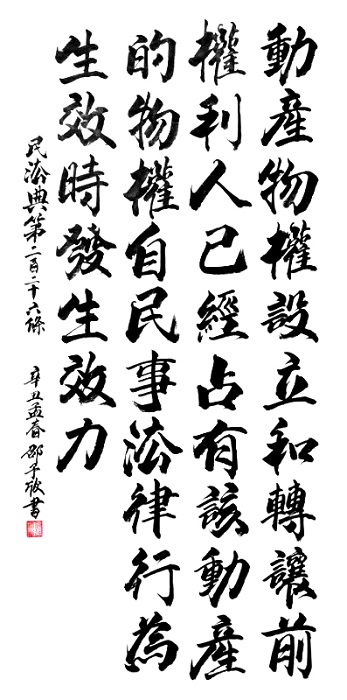 動產物權設立和轉讓前
權利人已經占有該動產
的物權自民事法律行為
生效時發生效力
民法典第二百二十六條 辛丑孟春邵子敬書